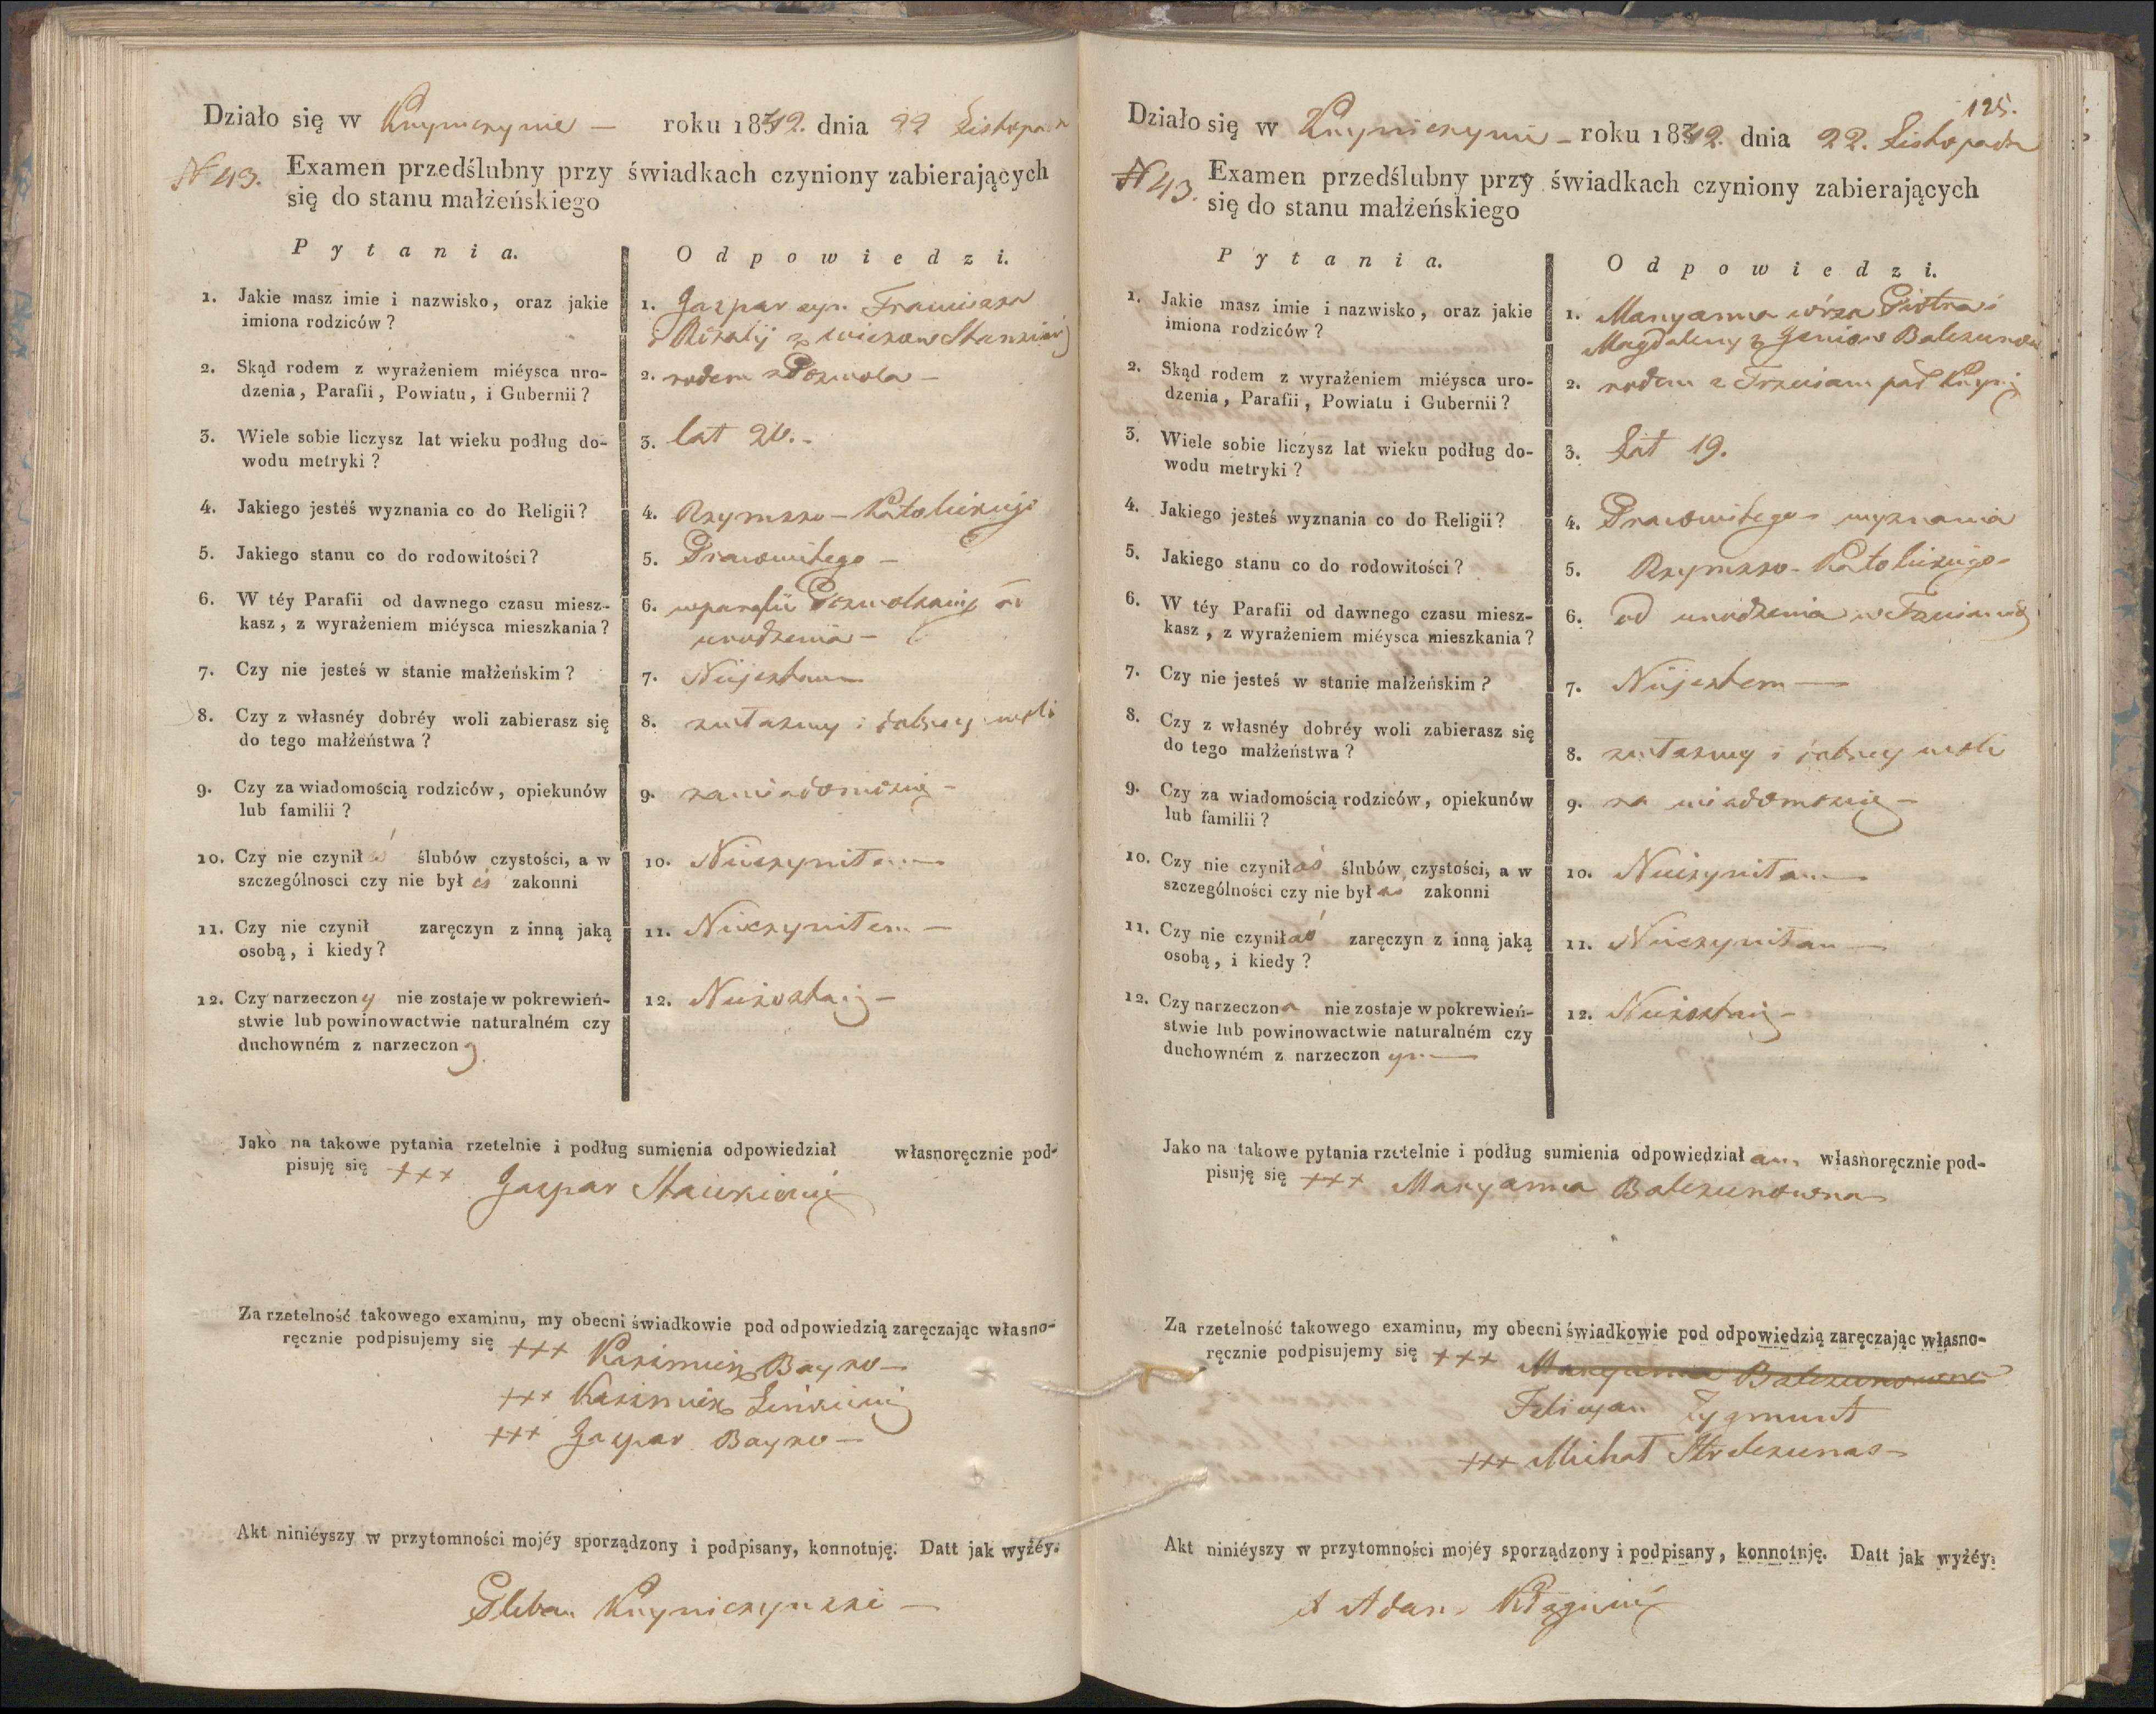 Działo się w Knyszynie — roku 1842. dnia 22 Listopada
N 43. Examen przedślubny przy świadkach czyniony zabierających
się do stanu małżeńskiego
Pytania. Odpowiedzi.
1. Jakie masz imie i nazwisko, oraz jakie
imiona rodziców?
1. Gaspar syn Franciszka
i
2. Skąd rodem z wyrażeniem miéysca uro-
dzenia, Parafii, Powiatu, i Gubernii?
2. rodem z
3. Wiele sobie liczysz lat wieku podług do-
wodu metryki?
3. lat
4. Jakiego jesteś wyznania co do Religii?
4. Rzymsko-Katolickiej
5. Jakiego stanu co do rodowitości?
5. Prawowitego —
6. W téy Parafii od dawnego czasu miesz-
kasz, z wyrażeniem miéysca mieszkania?
6. w parafii od
urodzenia —
7. Czy nie jesteś w stanie małżeńskim?
7. Niejestem
8. Czy z własnéy dobréy woli zabierasz się
do tego małżeństwa?
8. zwłasney i dobrey woli
9. Czy za wiadomością rodziców, opiekunów
lub familii?
9. zawiadomością —
10. Czy nie czynił ślubów czystości, a w
szczególnosci czy nie był eś zakonni
10. Nieczyniłem
11. Czy nie czynił zaręczyn z inną jaką
osobą, i kiedy?
11. Nieczyniłem —
12. Czy narzeczony nie zostaje w pokrewień-
stwie lub powinowactwie naturalném czy
duchowném z narzeczoną
12. Niezostaię —
Jako na takowe pytania rzetelnie i podług sumienia odpowiedział własnoręcznie pod-
pisuję się +++ Gaspar
Za rzetelność takowego examinu, my obecni świadkowie pod odpowiedzią zaręczając własno-
ręcznie podpisujemy się +++ Kazimierz Bayko —
+++ Kazimierz
+++ Gaspar Bayko —
Akt niniéyszy w przytomności mojéy sporządzony i podpisany, konnotuję. Datt jak wyżéy.
Pleban
125.
Działo się w Knyszynie — roku 1842. dnia 22. Listopada
N 43. Examen przedślubny przy świadkach czyniony zabierających
się do stanu małżeńskiego
Pytania. Odpowiedzi.
1. Jakie masz imie i nazwisko, oraz jakie
imiona rodziców?
1. Maryanna córka Piotra i
Magdaleny z
2. Skąd rodem z wyrażeniem miéysca uro-
dzenia, Parafii, Powiatu i Gubernii?
2. rodem z
3. Wiele sobie liczysz lat wieku podług do-
wodu metryki?
3. Lat 19.
4. Jakiego jesteś wyznania co do Religii?
4. Prawowitego wyznania
5. Jakiego stanu co do rodowitości?
5. Rzymsko-Katolickiego —
6. W téy Parafii od dawnego czasu miesz-
kasz, z wyrażeniem miéysca mieszkania?
6. od urodzenia w
7. Czy nie jesteś w stanie małżeńskim?
7. Niejestem —
8. Czy z własnéy dobréy woli zabierasz się
do tego małżeństwa?
8. zwłasney i dobrey woli
9. Czy za wiadomością rodziców, opiekunów
lub familii?
9. za wiadomością —
10. Czy nie czyniłaś ślubów czystości, a w
szczególności czy nie była zakonni
10. Nieczyniłam
11. Czy nie czyniłaś zaręczyn z inną jaką
osobą, i kiedy?
11. Nieczyniłam —
12. Czy narzeczona nie zostaje w pokrewień-
stwie lub powinowactwie naturalném czy
duchowném z narzeczonym —
12. Niezostaię —
Jako na takowe pytania rzetelnie i podług sumienia odpowiedziałam własnoręcznie pod-
pisuję się +++ Maryanna Balczunowna
Za rzetelność takowego examinu, my obecni świadkowie pod odpowiedzią zaręczając własno-
ręcznie podpisujemy się +++ Maryanna Balczunowna
Felicyan Zygmunt
+++ Michał
Akt niniéyszy w przytomności mojéy sporządzony i podpisany, konnotuję. Datt jak wyżéy.
X Adam